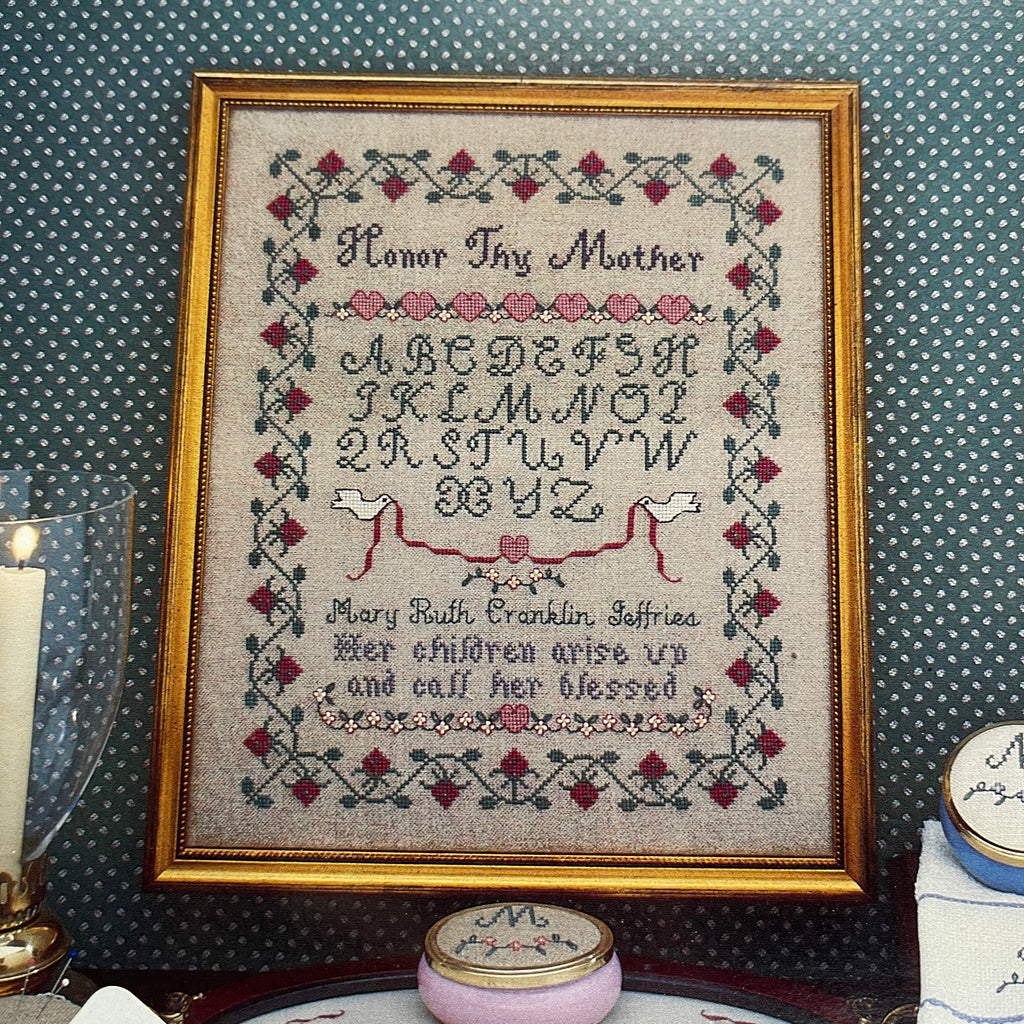 Honor Thy Mother
A B C D E F G H
I K L M N O P
Q R S T U V W
X Y Z
Mary Ruth Cranklin Jeffries
Her children arise up
and call her blessed
M